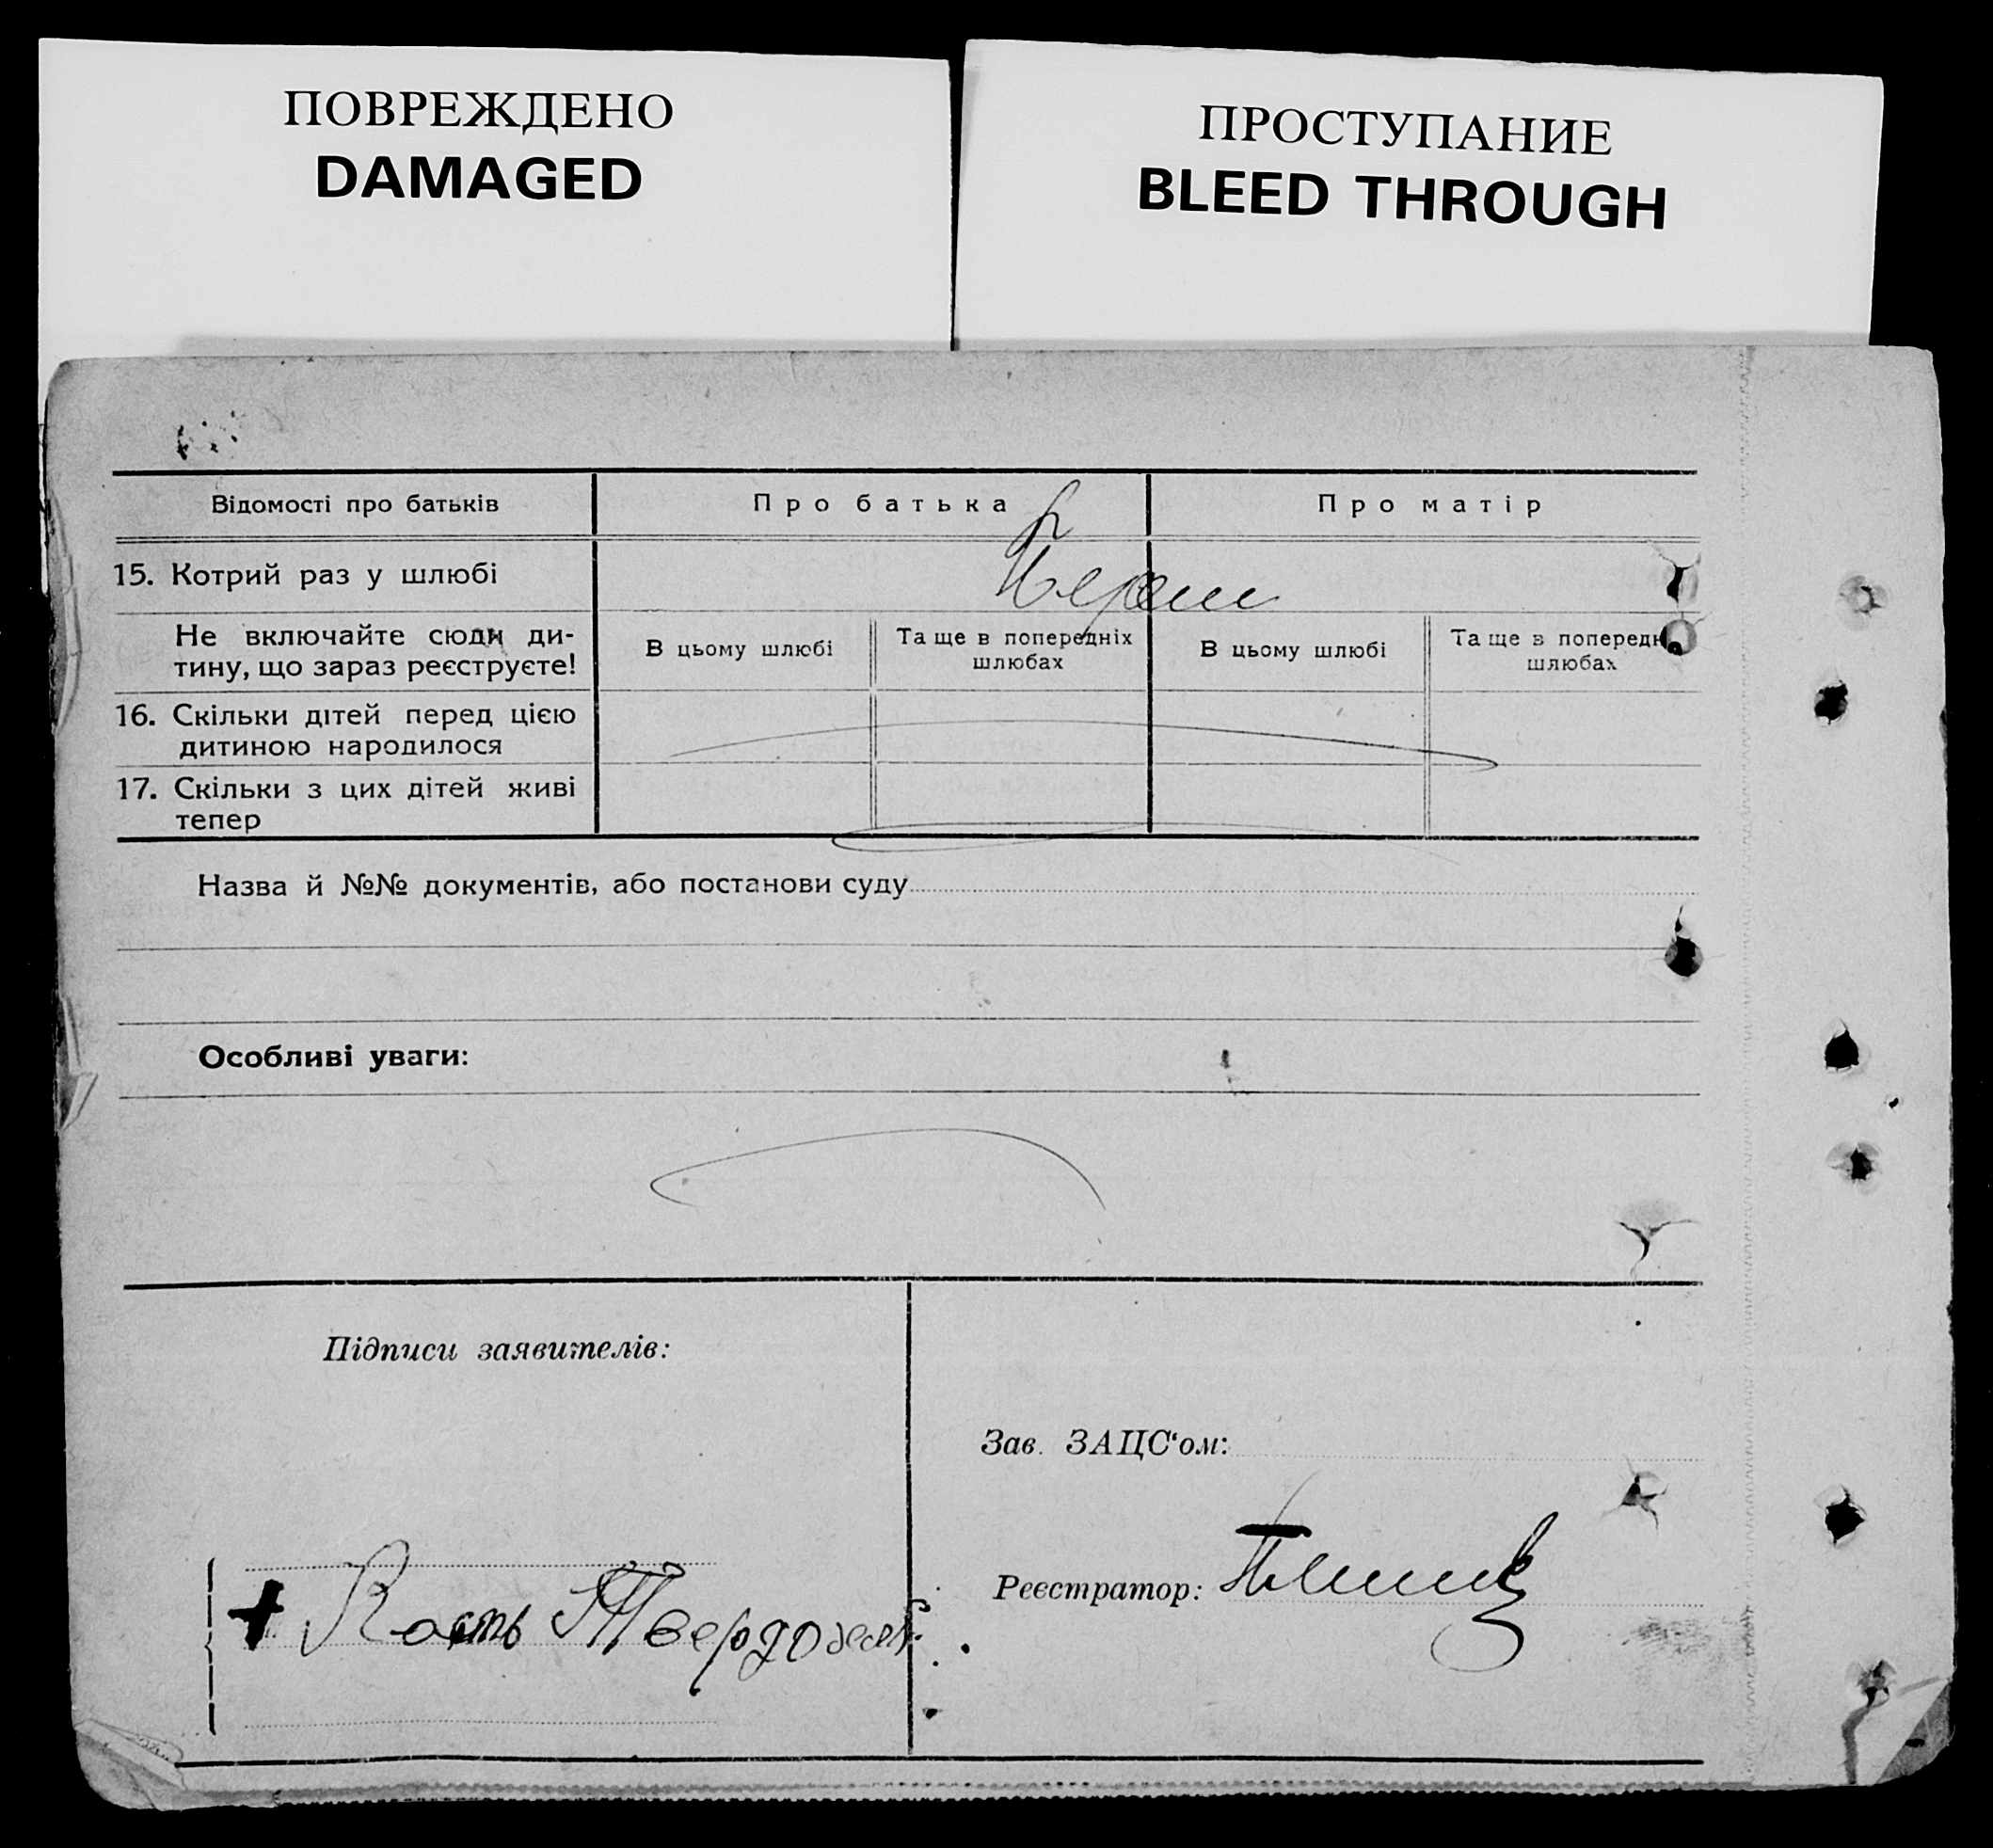 ПОВРЕЖДЕНО
DAMAGED
ПРОСТУПАНИЕ
BLEED THROUGH
Відомості про батьків
Про батька
Про матір
15. Котрий раз у шлюбі
Не включайте сюди ди-
тину, що зараз реєструєте!
В цьому шлюбі
Та ще в попередніх
шлюбах
В цьому шлюбі
Та ще в попередн
шлюбах
16. Скільки дітей перед цією
дитиною народилося
17. Скільки з цих дітей живі
тепер
Назва й №№ документів, або постанови суду
Особливі уваги:
Підписи заявителів:
Зав. ЗАЦС‘ом:
Реєстратор:
Кость